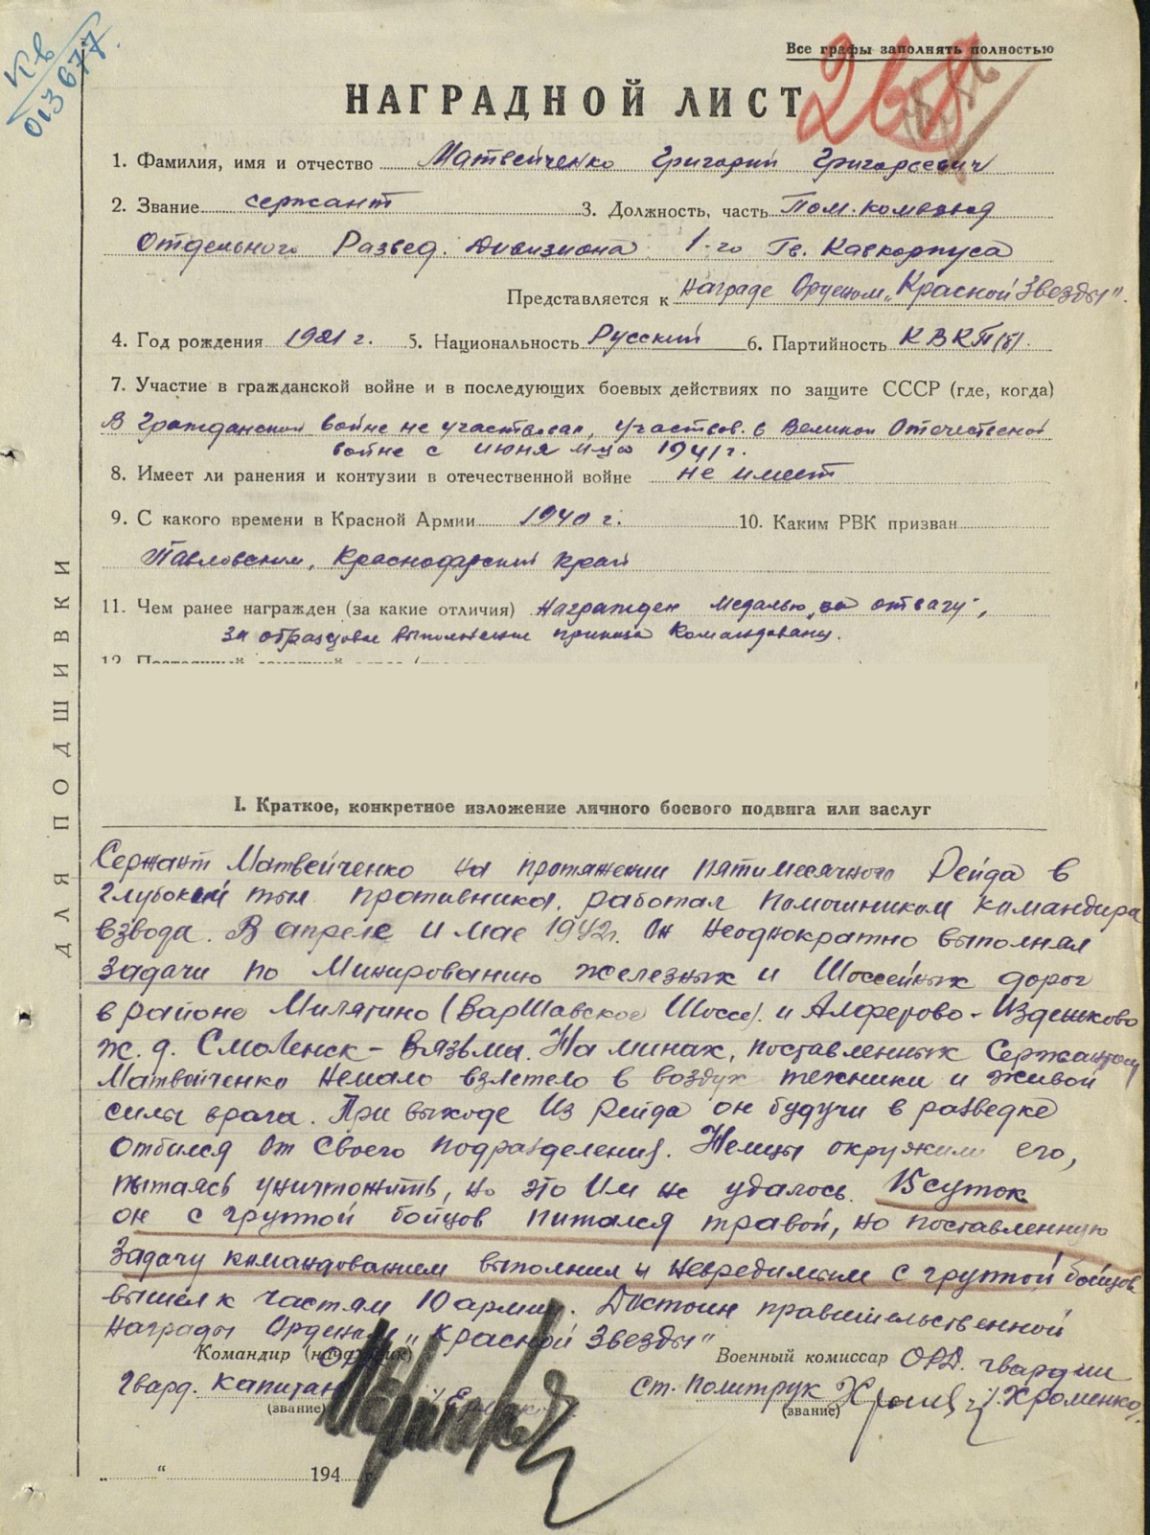 Кв
013677
Все графы заполнять полностью
268
НАГРАДНОЙ ЛИСТ
1. Фамилия, имя и отчество Матвейченко Григорий Григорьевич
2. Звание сержант 3. Должность, часть Пом. комвзвод
Отдельного Развед. Дивизиона 1-го Гв. Кавкорпуса
Представляется к награде Орденом „Красной Звезды".
4. Год рождения 1921 г. 5. Национальность Русский 6. Партийность КВКП(б).
7. Участие в гражданской войне и в последующих боевых действиях по защите СССР (где, когда)
В Гражданской войне не участвовал, участвов. в Великой Отечественной
войне с июня м-ца 1941 г.
8. Имеет ли ранения и контузии в отечественной войне не имеет
9. С какого времени в Красной Армии 1940 г. 10. Каким РВК призван
Павловским, Краснодарский край
11. Чем ранее награжден (за какие отличия) Награжден медалью „за отвагу",
за образцовое выполнение приказа Командования.
ДЛЯ ПОДШИВКИ
I. Краткое, конкретное изложение личного боевого подвига или заслуг
Сержант Матвейченко на протяжении пятимесячного Рейда в
глубокий тыл противника, работал помошником командира
взвода. В апреле и мае 1942 г. Он неоднократно выполнял
задачи по Минированию железных и Шоссейных дорог
в районе Милятино (Варшавское Шоссе). и Алферово - Издешково
ж. д. Смоленск - Вязьма. На минах, поставленных Сержантом
Матвейченко немало взлетело в воздух техники и живой
силы врага. При выходе из рейда он будучи в разведке
отбился от своего подразделения. Немцы окружили его,
пытаясь уничтожить, но это им не удалось. 15 суток
он с группой бойцов питался травой, но поставленную
Задачу командованием выполнил и невредимым с группой бойцов
вышел к частям 10 армии. Достоин правительственной
награды Орденом „Красной Звезды"
Командир (начальник) ОРД Военный комиссар ОРД. гвардии
Гвард. капитан ст. политрук /Хроменко/.
(звание) (звание)
„ " 194 г.